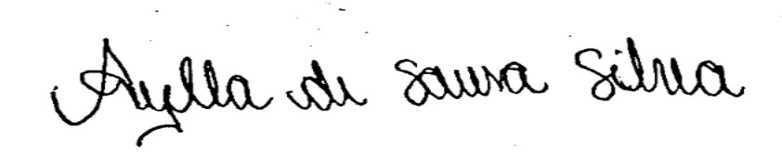 Aylla de Sousa Silva